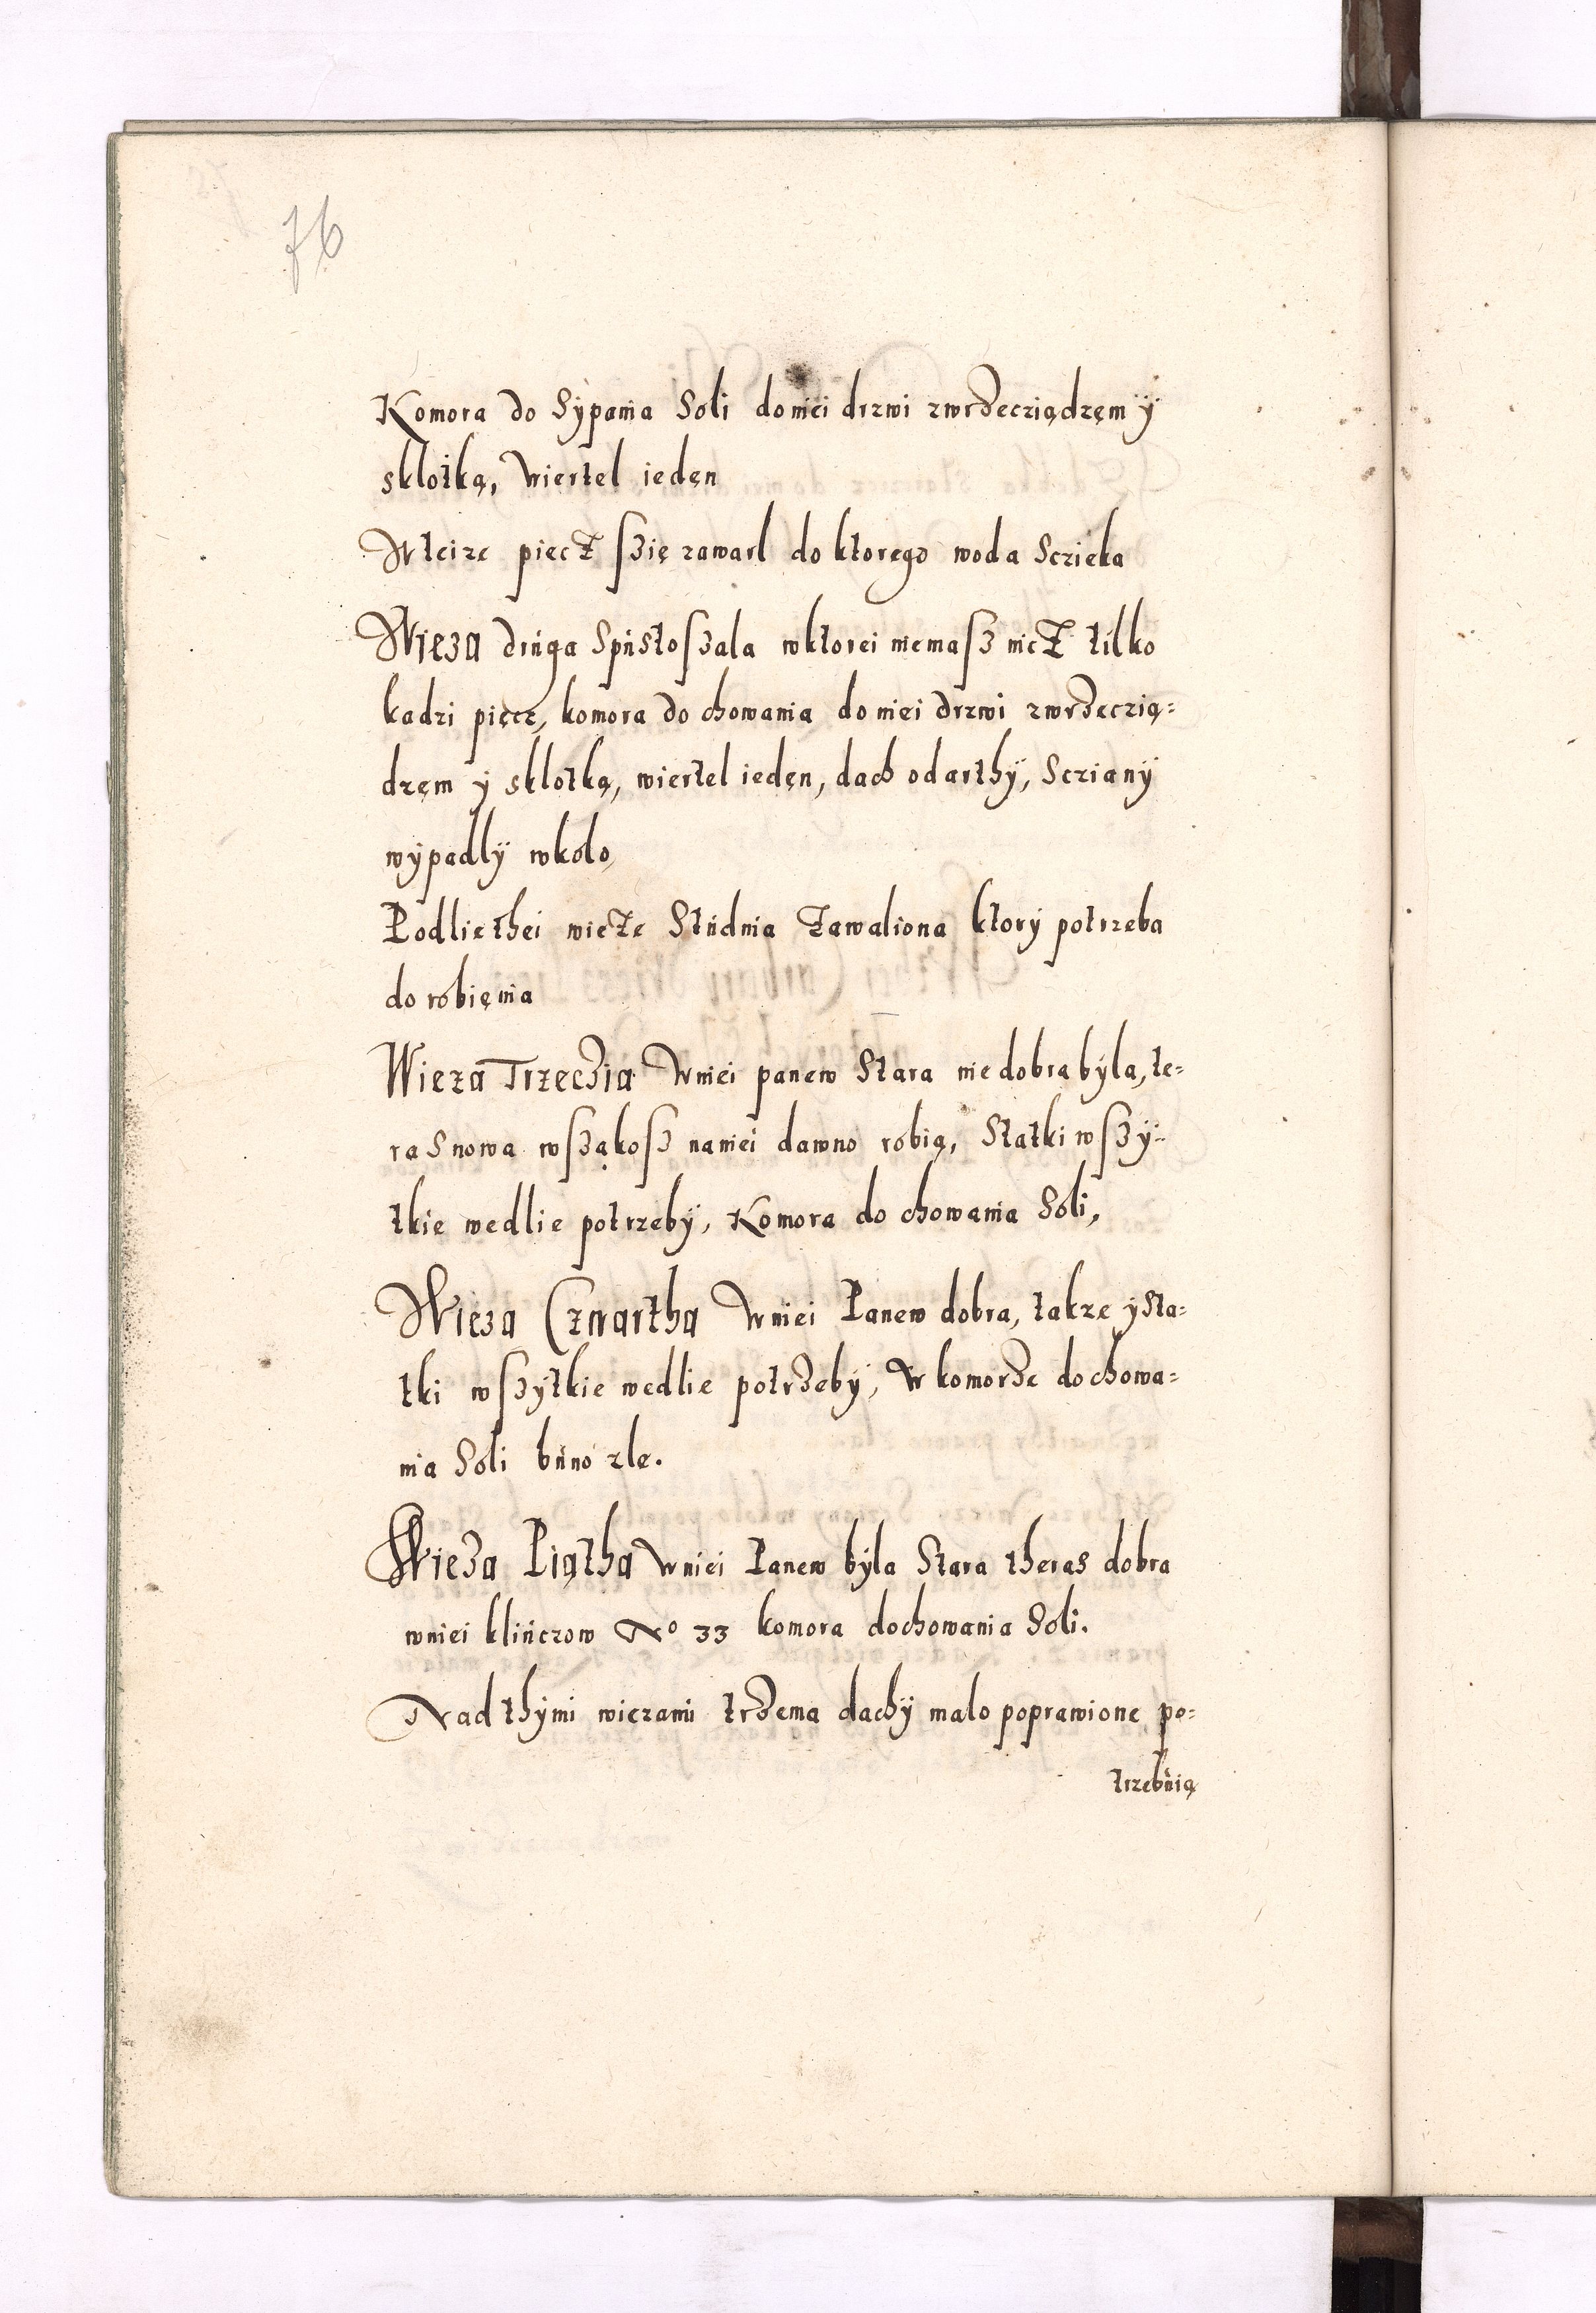 76
Komora do Sÿpania Soli do niei drzwi zwrzecziądzęm ÿ
sklotką, wiertel iedęn
W teize piecz szię zawarl do ktorego woda Sczieka
Wieza druga Spustoszala w ktorei niemasz nicz tilko
kadzi pięcz, komora do chowania do niei drzwi zwrzeczią=
dzęm ÿ sklotką, wiertel iedęn, dach odarthÿ, Sczianÿ
wÿpadlÿ wkolo,
Podlie thei wieze Studnia zawaliona ktorÿ potrzeba
do robięnia
Wieza Trzeczia W niei panew Stara nie dobra bÿla, te=
ras nowa wszakosz na niei dawno robią, Statki wszÿ=
tkie wedlie potrzebÿ, Komora do chowania Soli,
Wieza Czwartha W niei Panew dobra, takze ÿ Sta=
tki wszÿtkie wedlie potrzebÿ, W komorze do chowa=
nia Soli buno zle.
Wieza Piątha W niei Panew bÿla Stara theras dobra
w niei klinczow No 33 komora do chowania Soli.
Nad thÿmi wiezami trzema dachÿ malo poprawione po=
trzebuią